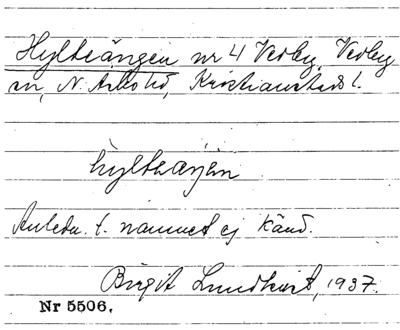 Hylteängen nr 4 Verby, Verby
sn, N. Åsbo hd, Kristianstads l.
hylteäŋen
Anledn. t. namnet ej känd.
Birgit Lundkvist, 1937.
Nr 5506.